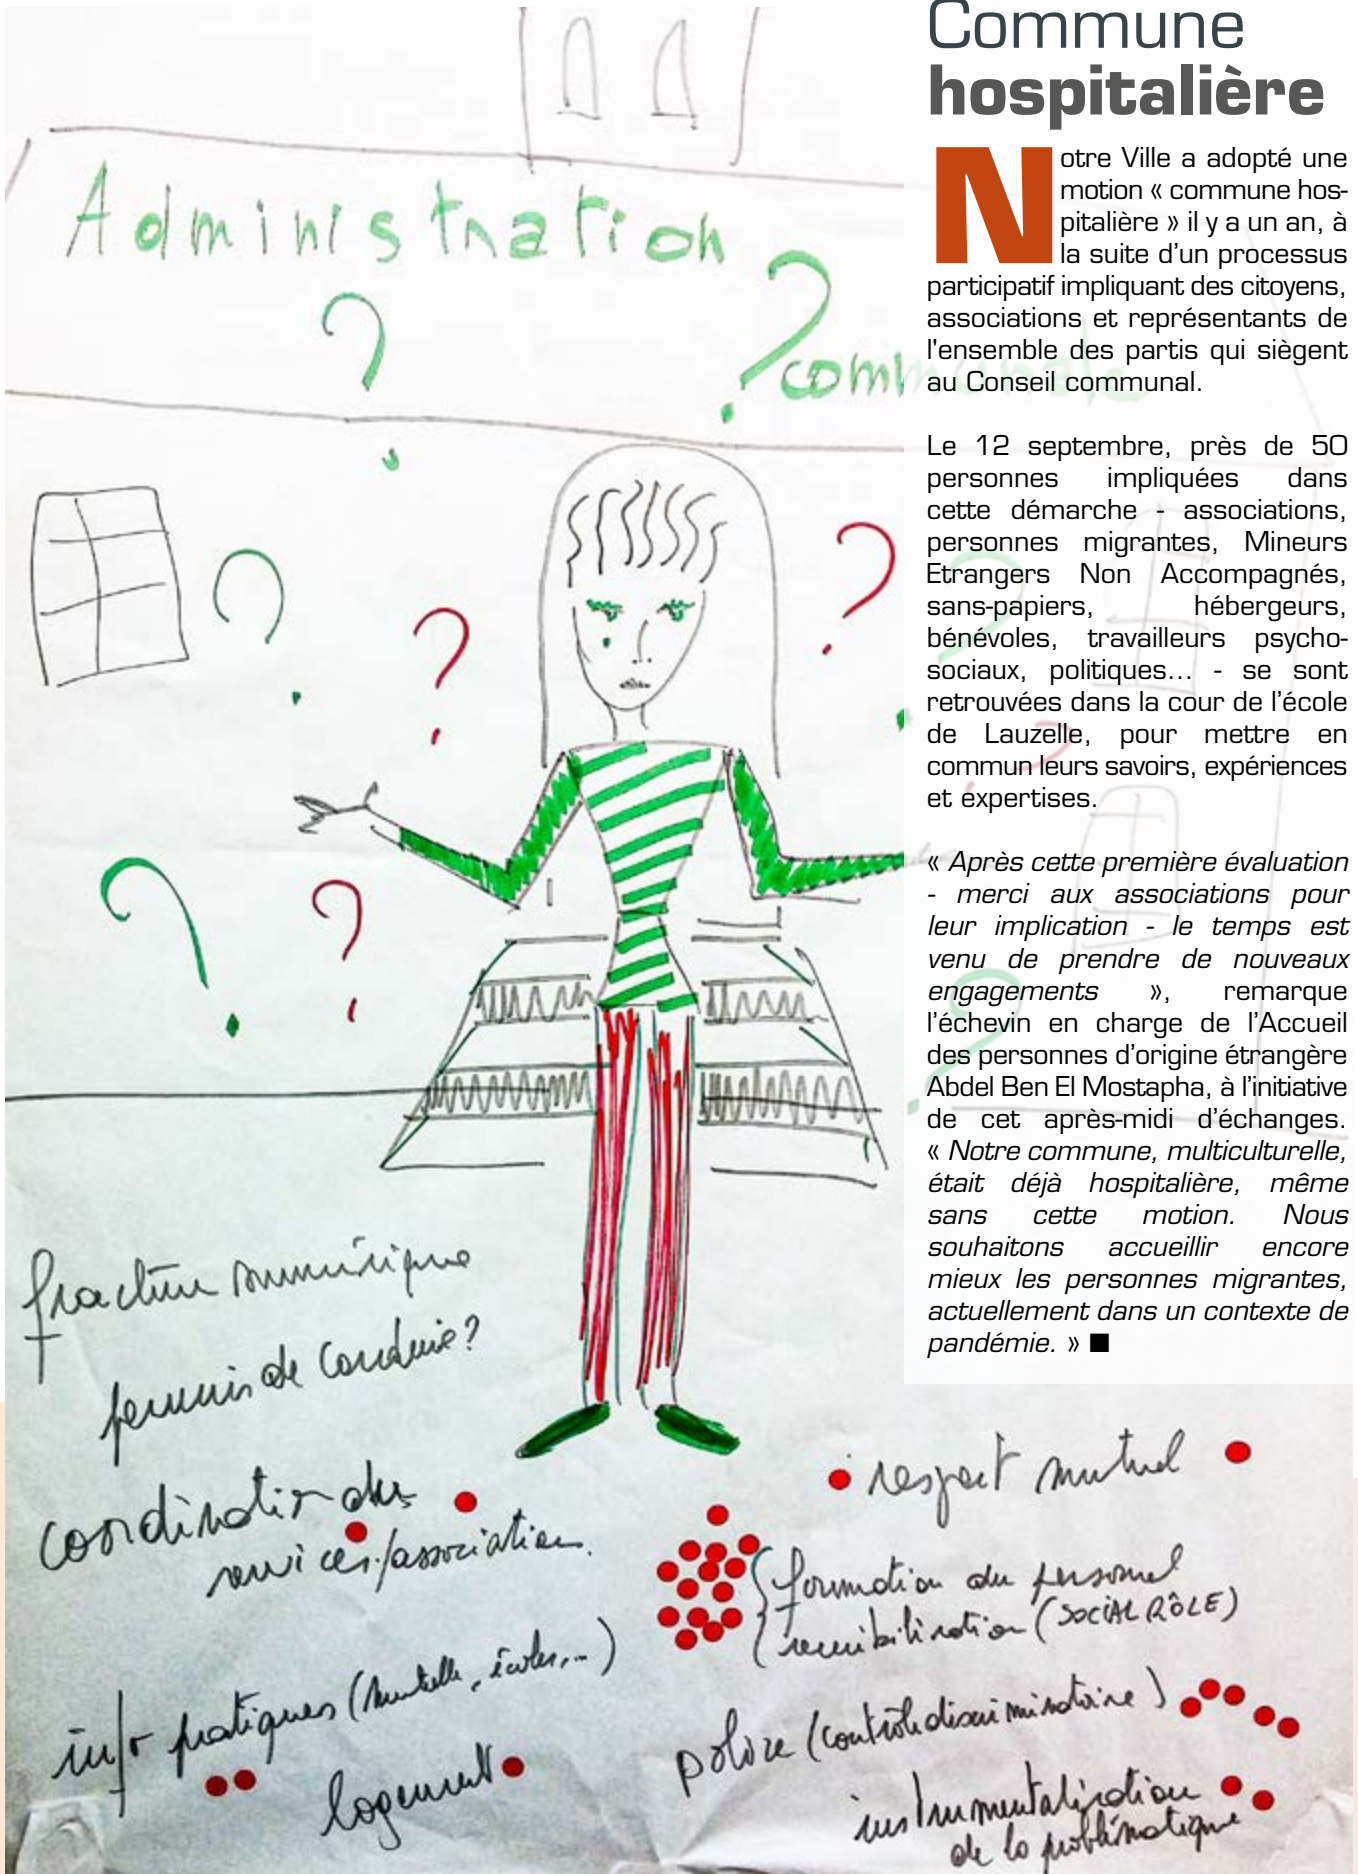 Commune
hospitalière
Notre Ville a adopté une
motion « commune hos-
pitalière » il y a un an, à
la suite d’un processus
participatif impliquant des citoyens,
associations et représentants de
l'ensemble des partis qui siègent
au Conseil communal.
Le 12 septembre, près de 50
personnes impliquées dans
cette démarche - associations,
personnes migrantes, Mineurs
Etrangers Non Accompagnés,
sans-papiers, hébergeurs,
bénévoles, travailleurs psycho-
sociaux, politiques... - se sont
retrouvées dans la cour de l’école
de Lauzelle, pour mettre en
commun leurs savoirs, expériences
et expertises.
« Après cette première évaluation
- merci aux associations pour
leur implication - le temps est
venu de prendre de nouveaux
engagements », remarque
l’échevin en charge de l’Accueil
des personnes d’origine étrangère
Abdel Ben El Mostapha, à l’initiative
de cet après-midi d’échanges.
« Notre commune, multiculturelle,
était déjà hospitalière, même
sans cette motion. Nous
souhaitons accueillir encore
mieux les personnes migrantes,
actuellement dans un contexte de
pandémie. » ■
Administration
? ?
communale
? ? ? ?
? ? ?
?
fracture numérique
permis de conduire?
coordination des
services/associations.
info pratiques (mutuelle, écoles,...)
logement
respect mutuel
formation du personnel
sensibilisation (SOCIAL RÔLE)
police (contrôle discriminatoire)
instrumentalisation
de la problématique